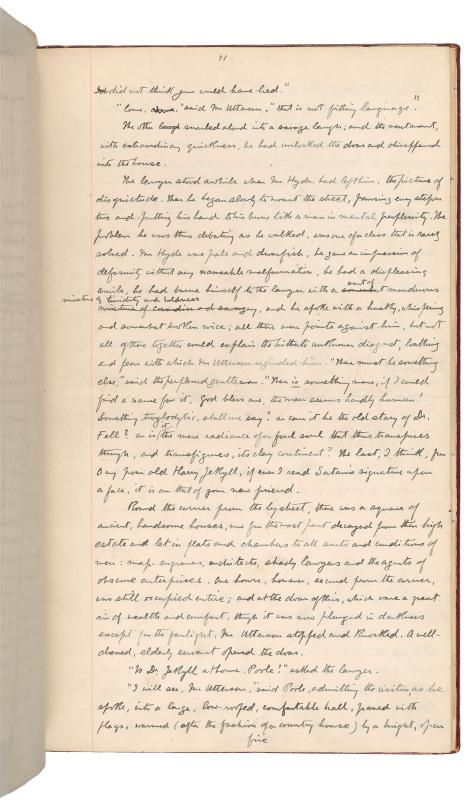 11
did not think you would have lied."
"Come, said Mr Utterson, "that is not fitting language."
The other snarled aloud into a savage laugh; and the next moment,
with extraordinary quickness, he had unlocked the door and disappeared
into the house.
The lawyer stood awhile when Mr Hyde had left him, the picture of
disquietude. Then he began slowly to mount the street, pausing every step or
two and putting his hand to his brow like a man in mental perplexity. The
problem he was thus debating as he walked, was one of a class that is rarely
solved. Mr Hyde was pale and dwarfish, he gave an impression of
deformity without any nameable malformation, he had a displeasing
smile, he had borne himself to the lawyer with a sort of murderous
mixture of timidity and boldness
mixture of cowardice and savagery, and he spoke with a husky, whispering
and somewhat broken voice; all these were points against him, but not
all of these together could explain the hitherto unknown disgust, loathing
and fear with which Mr Utterson regarded him. "There must be something
else," said the perplexed gentleman. "There is something more, if I could
find a name for it. God bless me, the man seems hardly human!
Something troglodytic, shall we say? or can it be the old story of Dr.
Fell? or is it the mere radiance of a foul soul that thus transpires
through, and transfigures, its clay continent? The last, I think; for
O my poor old Harry Jekyll, if ever I read Satan's signature upon
a face, it is on that of your new friend.
Round the corner from the by street, there was a square of
ancient, handsome houses, now for the most part decayed from their high
estate and let in flats and chambers to all sorts and conditions of
men: map-engravers, architects, shady lawyers and the agents of
obscure enterprises. One house, however, second from the corner,
was still occupied entire; and at the door of this, which wore a great
air of wealth and comfort, though it was now plunged in darkness
except for the fanlight, Mr Utterson stopped and knocked. A well-
dressed, elderly servant opened the door.
"Is Dr. Jekyll at home, Poole?" asked the lawyer.
"I will see, Mr Utterson," said Poole, admitting the visitor, as he
spoke, into a large, low-roofed, comfortable hall, paved with
flags, warmed (after the fashion of a country house) by a bright, open
fire